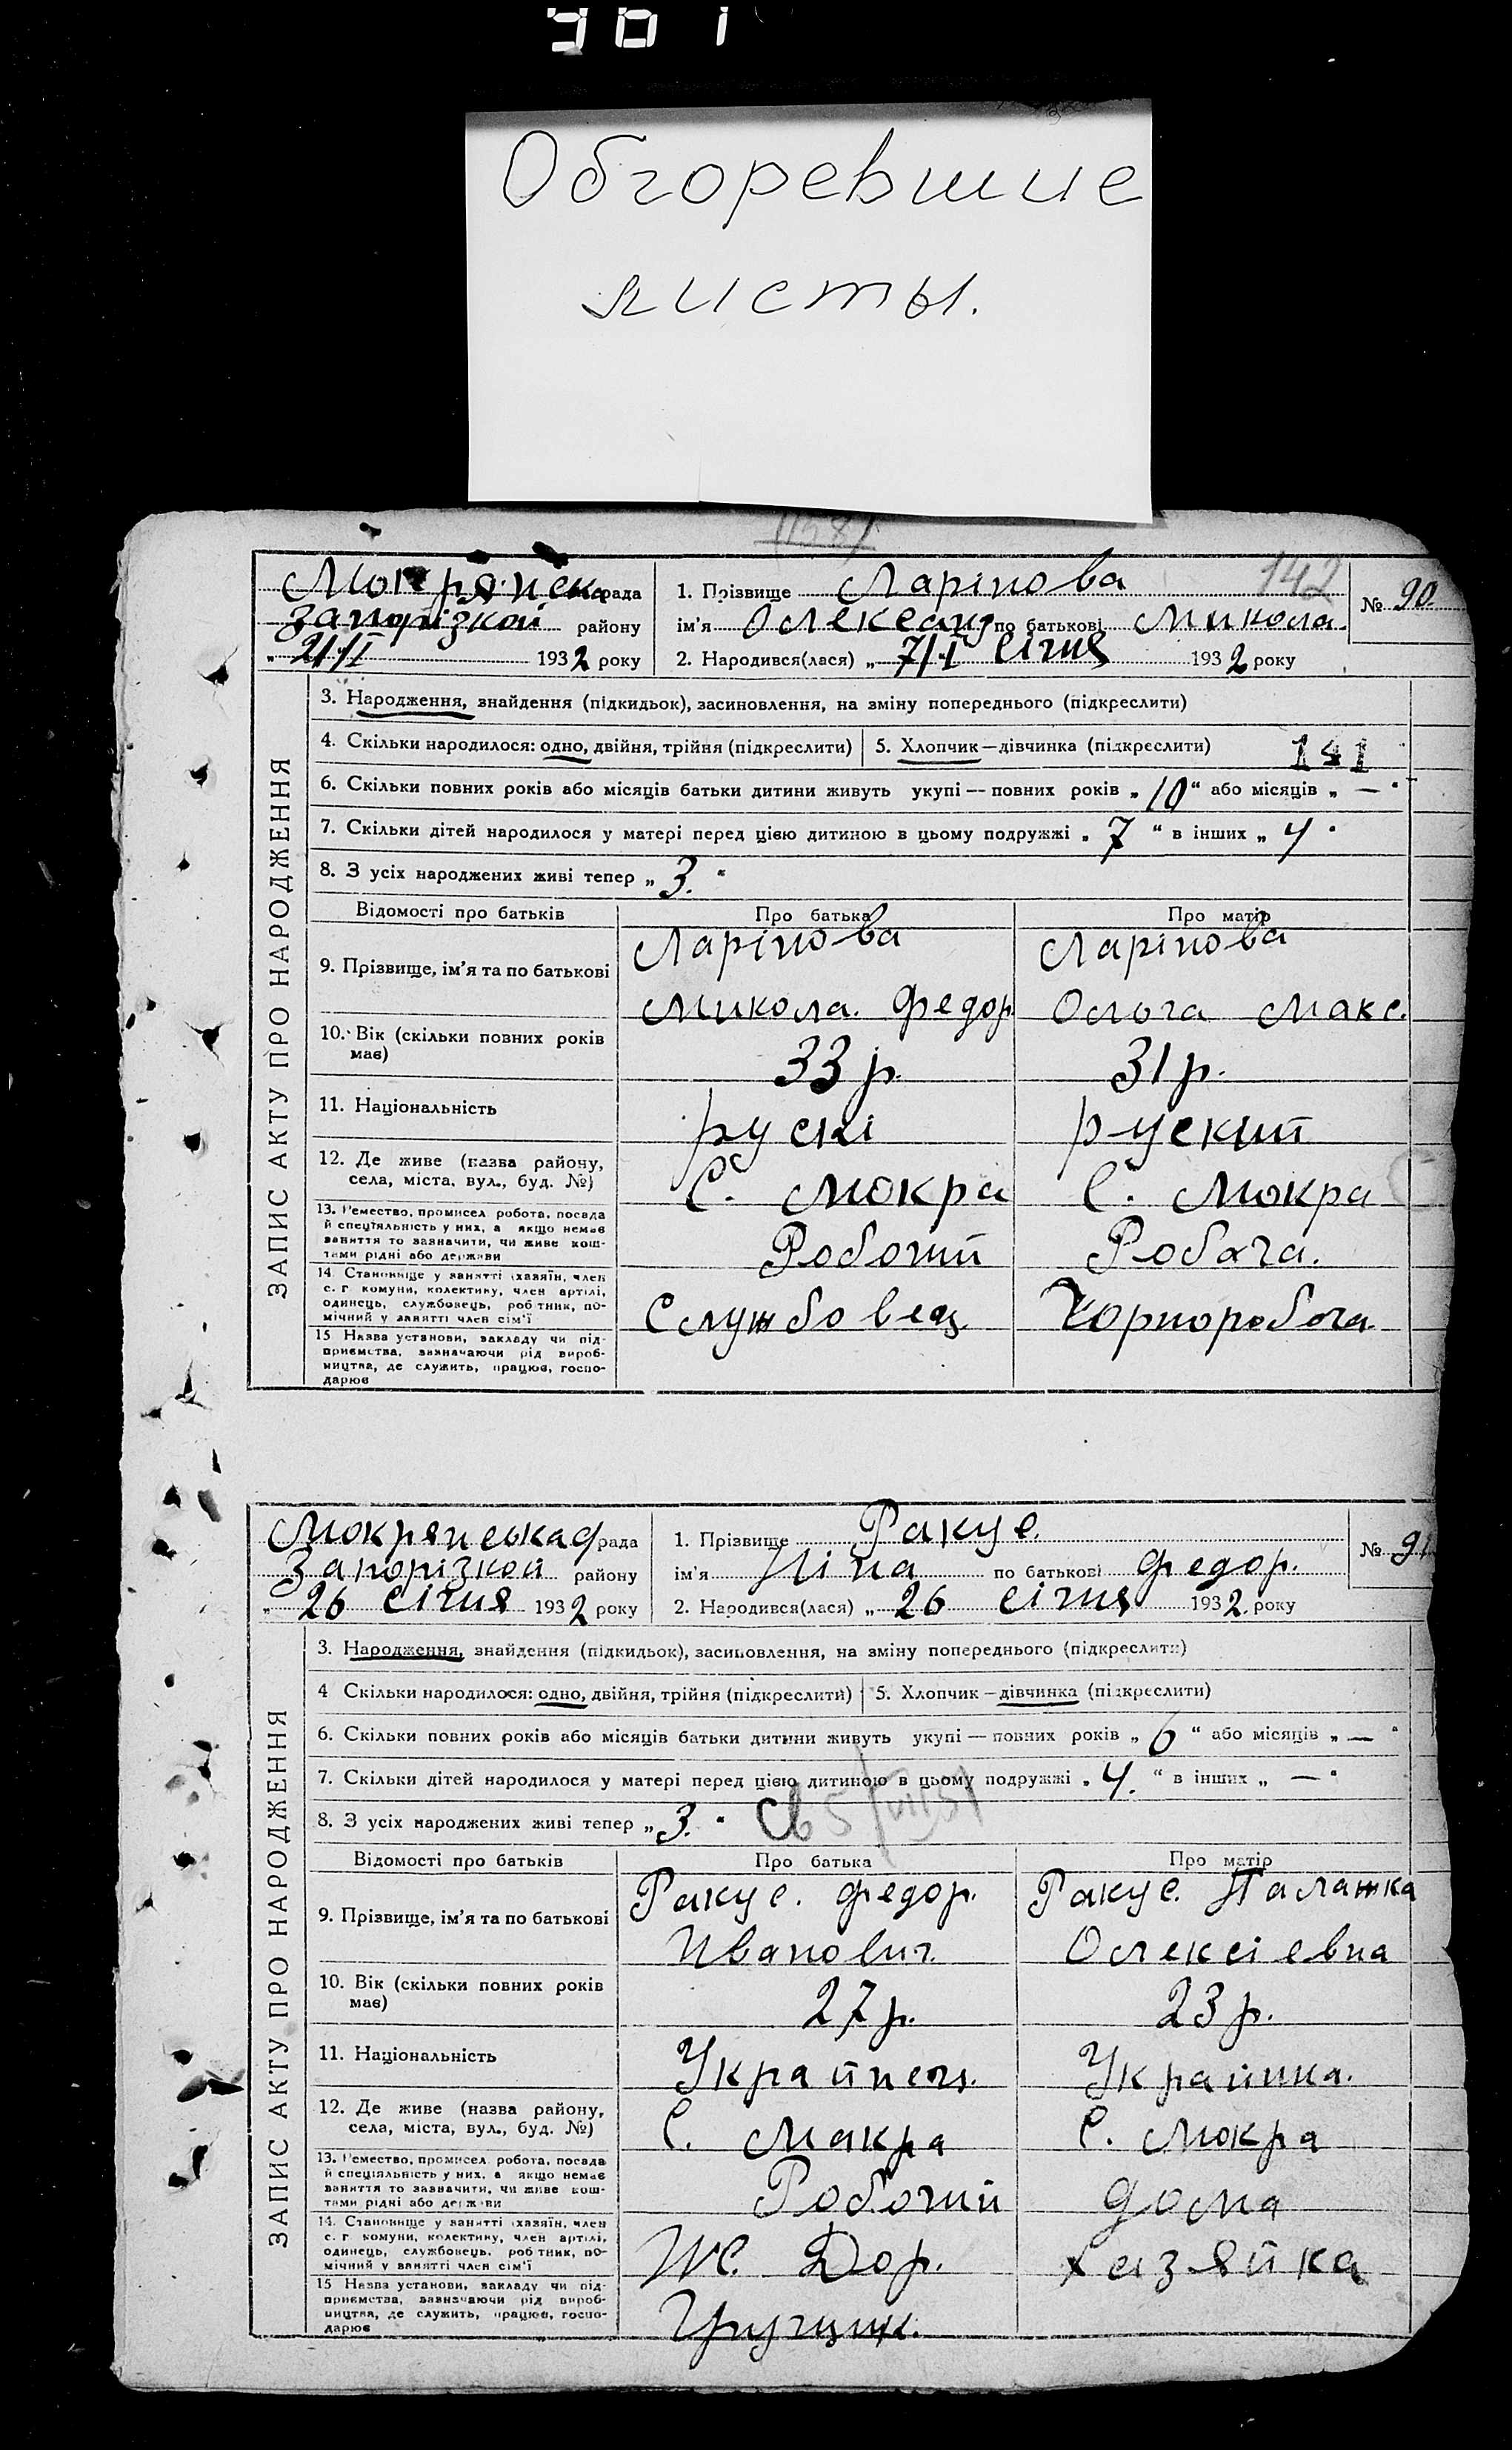 Обгоревшие
листы.
142
Мокрянська рада
Запорізкой району
„ 21/I 1932 року
1. Прізвище Ларінова
ім'я Олександ по батькові Микола.
2. Народився(лася) „ 7/I січня 1932 року
№ 90.
ЗАПИС АКТУ ПРО НАРОДЖЕННЯ
3. Народження, знайдення (підкидьок), засиновлення, на зміну попереднього (підкреслити)
4. Скільки народилося: одно, двійня, трійня (підкреслити) 5. Хлопчик—дівчинка (підкреслити)
141
6. Скільки повних років або місяців батьки дитини живуть укупі — повних років „ 10 “ або місяців „ — “
7. Скільки дітей народилося у матері перед цією дитиною в цьому подружжі „ 7 “ в інших „ 4 “
8. З усіх народжених живі тепер „ 3. “
Відомості про батьків Про батька Про матір
9. Прізвище, ім'я та по батькові
Ларінова Ларінова
Микола. Федор. Ольга Макс.
10. Вік (скільки повних років має) 33 р. 31 р.
11. Національність рускі рускит
12. Де живе (назва району, села, міста, вул., буд. №) С. Мокра С. Мокра
13. Ремество, промисел робота, посада й спеціяльність у них, а якщо немає заняття то зазначити, чи живе коштами рідні або держави Робочий Робоча.
14. Становище у занятті (хазяїн, член с. г. комуни, колективу, член артілі, одинець, службовець, робітник, помічний у занятті член сім'ї Службовец. Чорноробоча
15 Назва установи, закладу чи підприємства, зазначаючи рід виробництва, де служить, працює, господарює
Мокрянська рада
Запорізкой району
„ 26 січня 1932 року
1. Прізвище Ракус.
ім'я Ніна по батькові Федор.
2. Народився(лася) „ 26 січня 1932. року
№ 91
ЗАПИС АКТУ ПРО НАРОДЖЕННЯ
3. Народження, знайдення (підкидьок), засиновлення, на зміну попереднього (підкреслити)
4 Скільки народилося: одно, двійня, трійня (підкреслити) 5. Хлопчик—дівчинка (підкреслити)
6. Скільки повних років або місяців батьки дитини живуть укупі — повних років „ 6 “ або місяців „ — “
7. Скільки дітей народилося у матері перед цією дитиною в цьому подружжі „ 4. “ в інших „ — “
8. З усіх народжених живі тепер „ 3. “
Відомості про батьків Про батька Про матір
9. Прізвище, ім'я та по батькові
Ракус. Федор. Ракус. Палажка
Иванович. Олексіевна
10. Вік (скільки повних років має) 27 р. 23 р.
11. Національність Украйнец. Украйнка.
12. Де живе (назва району, села, міста, вул., буд. №) С. Макра С. Мокра
13. Ремество, промисел робота, посада й спеціяльність у них, а якщо немає заняття то зазначити, чи живе коштами рідні або держави Робочий дома
14. Становище у занятті (хазяїн, член с. г. комуни, колективу, член артілі, одинець, службовець, робітник, помічний у занятті член сім'ї Ж. Дор. хазяйка
15 Назва установи, закладу чи підприємства, зазначаючи рід виробництва, де служить, працює, господарює Грущик.